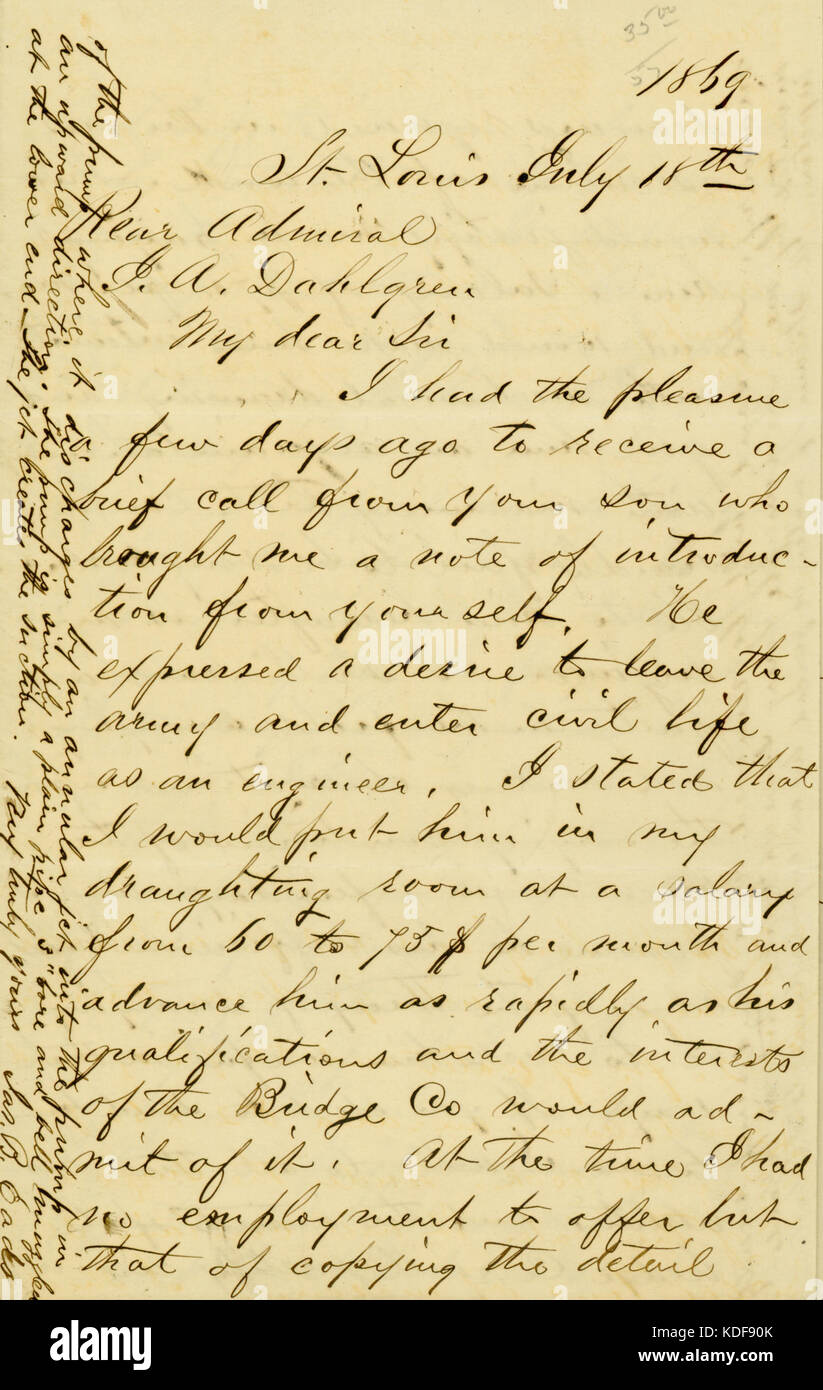 35 00
1869
St. Louis July 18th
Rear Admiral
J. A. Dahlgren
My dear Sir
I had the pleasure
a few days ago to receive a
brief call from your son who
brought me a note of introduc-
tion from yourself. He
expressed a desire to leave the
army and enter civil life
as an engineer. I stated that
I would put him in my
draughting room at a salary
from 60 to 75 $ per month and
advance him as rapidly as his
qualifications and the interests
of the Bridge Co would ad-
mit of it. At the time I had
no employment to offer but
that of copying the detail
of the pump where it discharges by an annular jet into the pump in
an upward direction. The pump is simply a plain pipe 3" bore and bell muzzled
at the lower end - the jet creates the suction. Very truly yours Jas. B. Eads
alamy
alamy stock photo
KDF90K
www.alamy.com